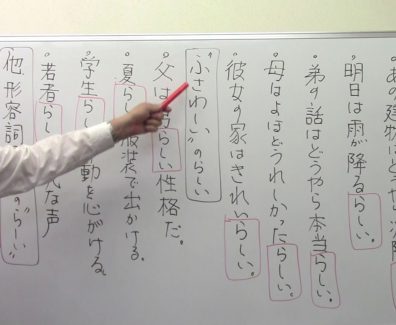 あの建物はどうやら消防
明日は雨が降るらしい。
弟の話はどうやら本当らしい。
母はよほどうれしかったらしい。
彼女の家はきれいらしい。
"ふさわしい"のらしい
父は らしい性格だ。
夏らし 服装で出かける。
学生らし 動を心がける。
若者らし な声
他.形容詞 "のらしい"